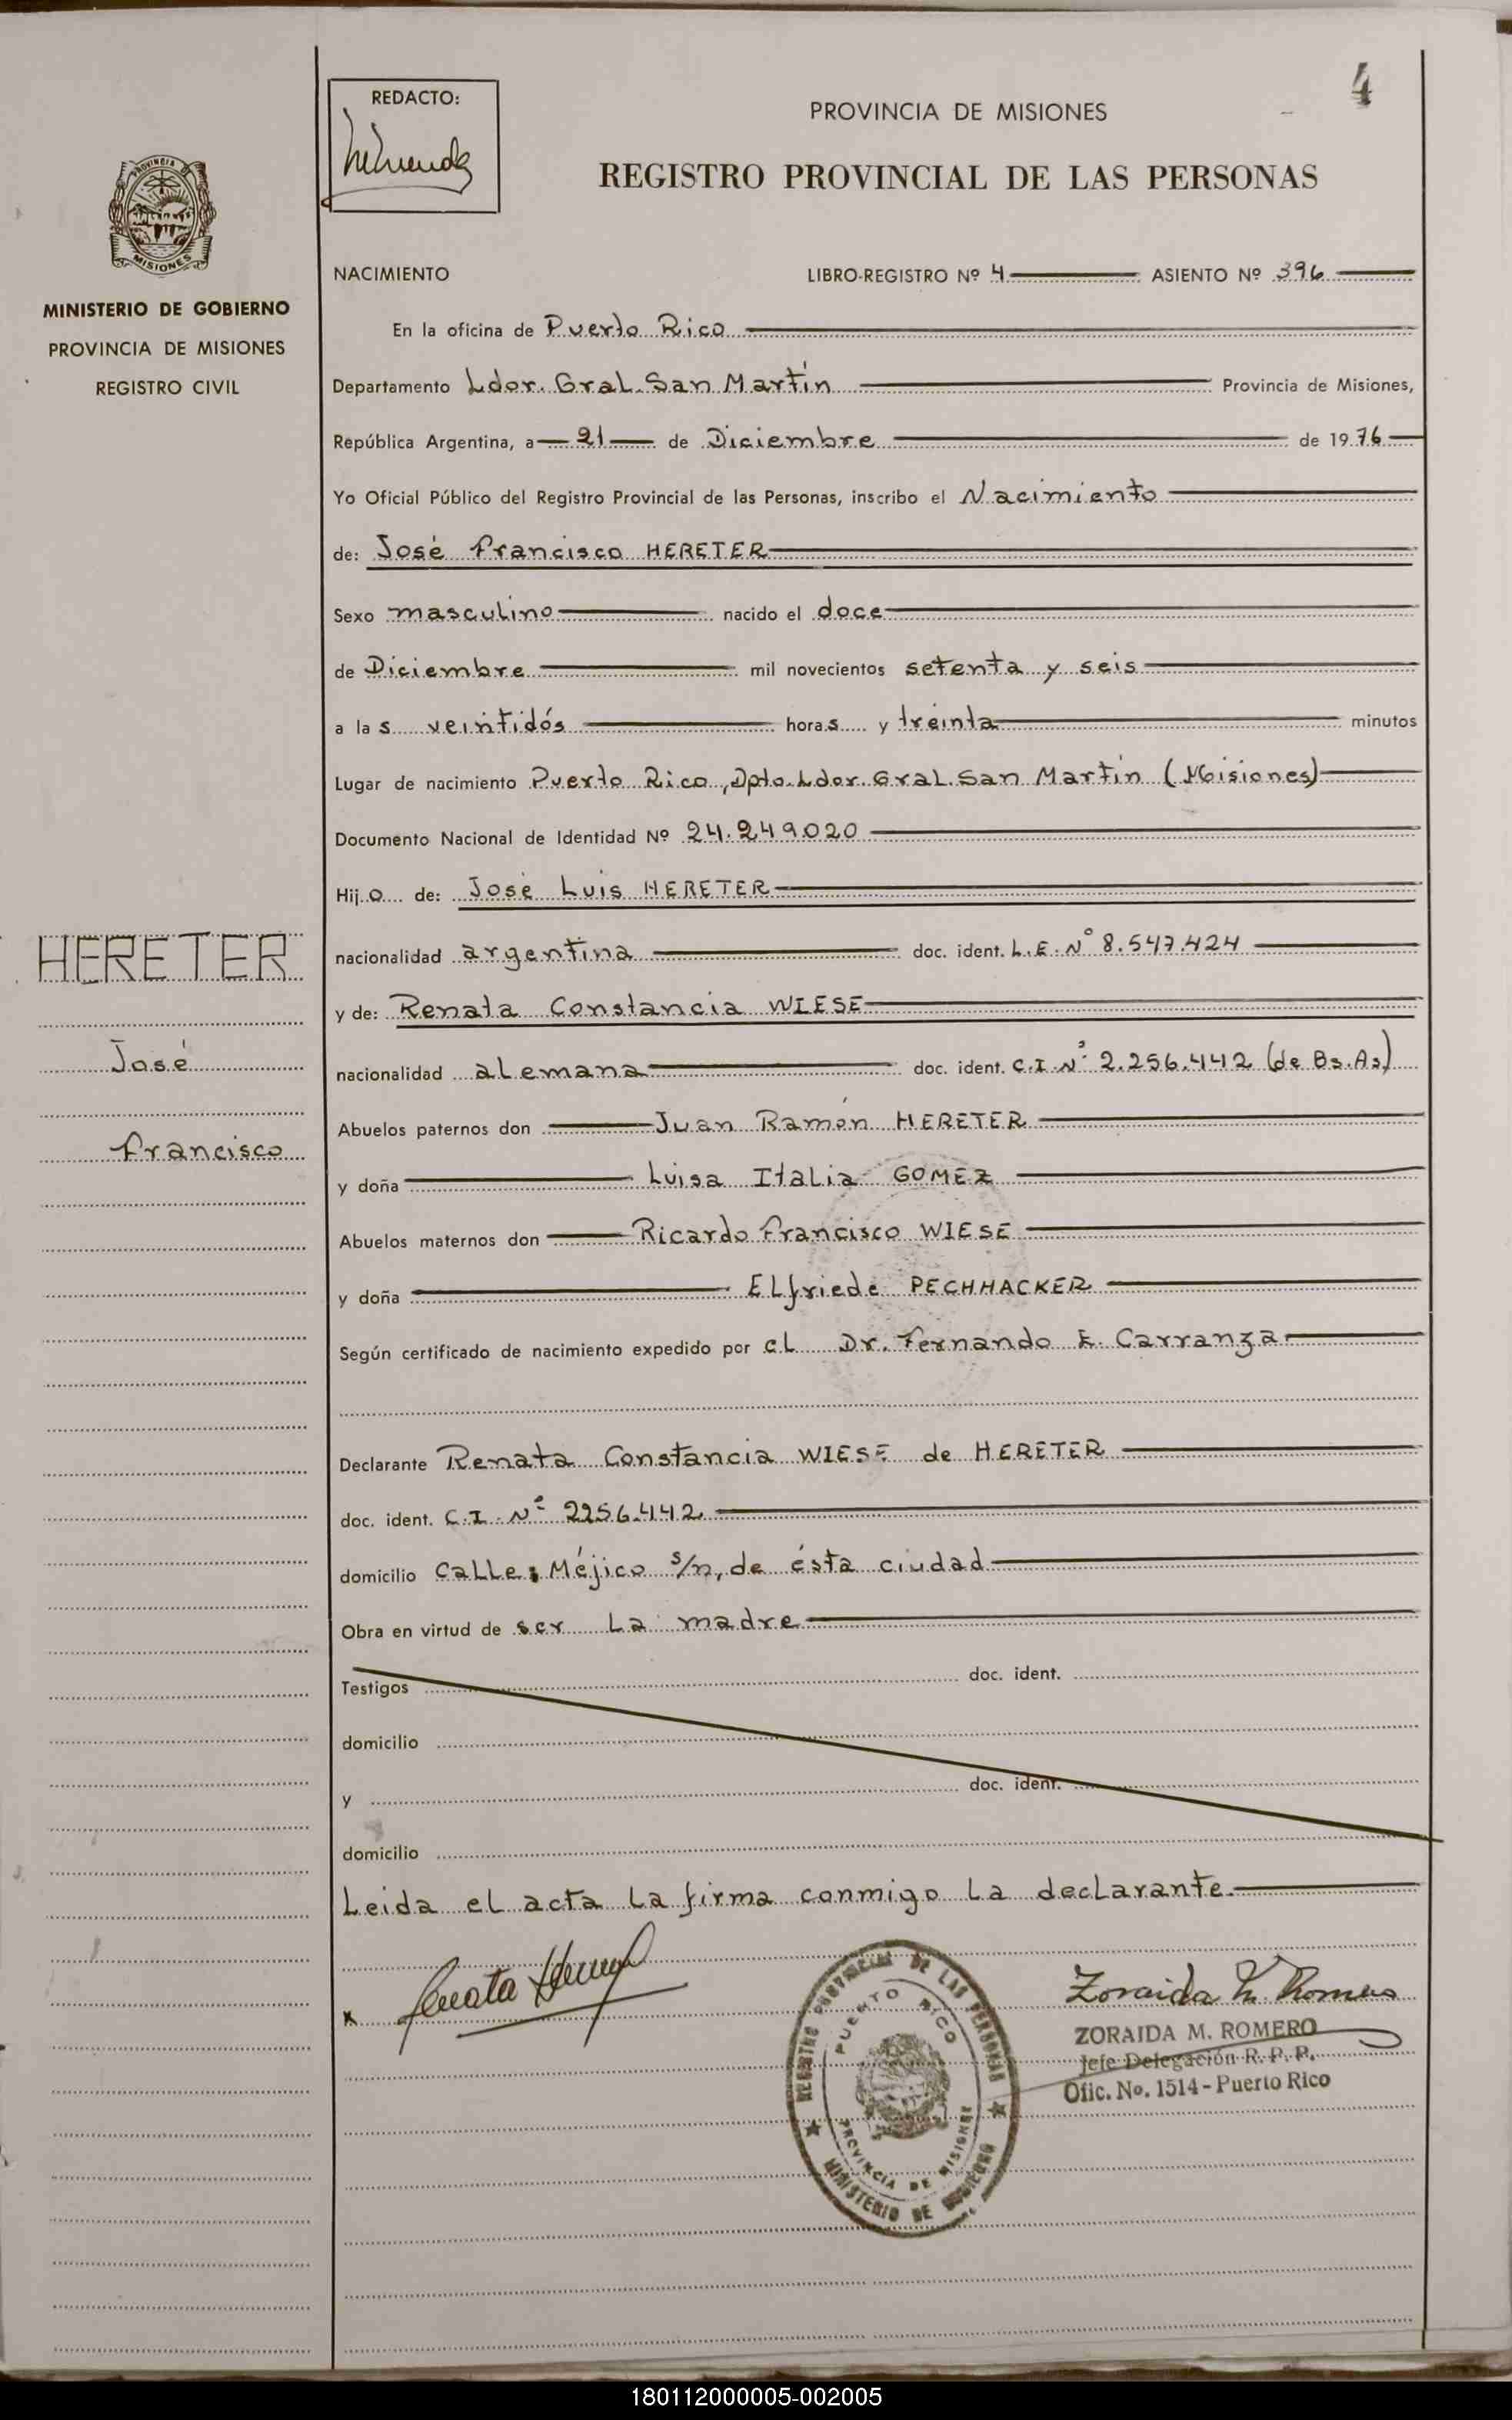 4
REDACTO:
PROVINCIA DE MISIONES
REGISTRO PROVINCIAL DE LAS PERSONAS
PROVINCIA DE
MISIONES
MINISTERIO DE GOBIERNO
PROVINCIA DE MISIONES
REGISTRO CIVIL
NACIMIENTO LIBRO-REGISTRO Nº 4 ASIENTO Nº 396
En la oficina de Puerto Rico
Departamento Ldor. Gral. San Martín Provincia de Misiones,
República Argentina, a 21 de Diciembre de 1976
Yo Oficial Público del Registro Provincial de las Personas, inscribo el Nacimiento
de: José Francisco HERETER
Sexo masculino nacido el doce
de Diciembre mil novecientos setenta y seis
a las veintidós horas y treinta minutos
Lugar de nacimiento Puerto Rico, Dpto. Ldor. Gral. San Martín (Misiones)
Documento Nacional de Identidad Nº 24.249.020
Hijo de: José Luis HERETER
nacionalidad argentina doc. ident. L.E. Nº 8.547.424
y de: Renata Constancia WIESE
nacionalidad alemana doc. ident. C.I. Nº 2.256.442 (de Bs.As)
Abuelos paternos don Juan Ramón HERETER
y doña Luisa Italia GOMEZ
Abuelos maternos don Ricardo Francisco WIESE
y doña ELfriede PECHHACKER
Según certificado de nacimiento expedido por el Dr. Fernando E. Carranza
Declarante Renata Constancia WIESE de HERETER
doc. ident. C.I. Nº 2256.442
domicilio Calle: Méjico s/n, de ésta ciudad
Obra en virtud de ser La madre
Testigos doc. ident.
domicilio
y doc. ident.
domicilio
Leida el acta la firma conmigo la declarante.
HERETER
José
Francisco
x Renata
REGISTRO PROVINCIAL DE LAS PERSONAS
PUERTO RICO
PROVINCIA DE MISIONES
MINISTERIO DE GOBIERNO
Zoraida M. Romero
ZORAIDA M. ROMERO
Jefe Delegación R. P. P.
Ofic. No. 1514 - Puerto Rico
180112000005-002005